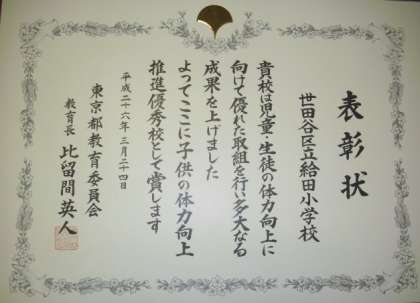 表彰状
世田谷区立給田小学校
貴校は児童・生徒の体力向上に
向けて優れた取組を行い多大なる
成果を上げました
よってここに子供の体力向上
推進優秀校として賞します
平成二十六年三月二十四日
東京都教育委員会
教育長 比留間英人